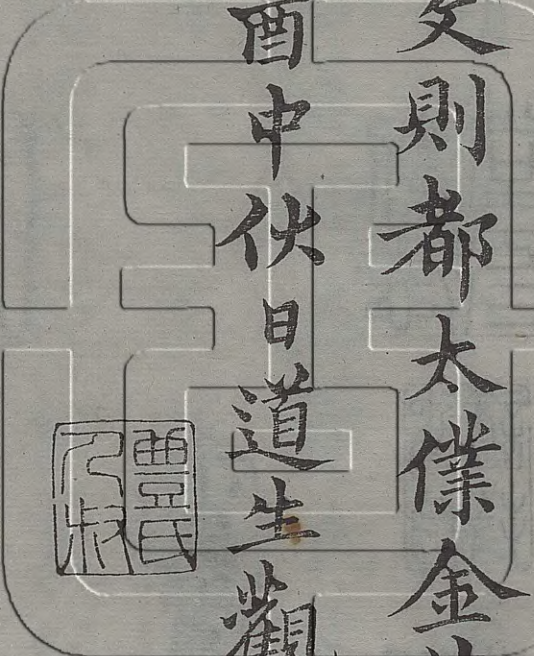 文則都太僕金
酉中伏日道生觀
豐氏
人叔